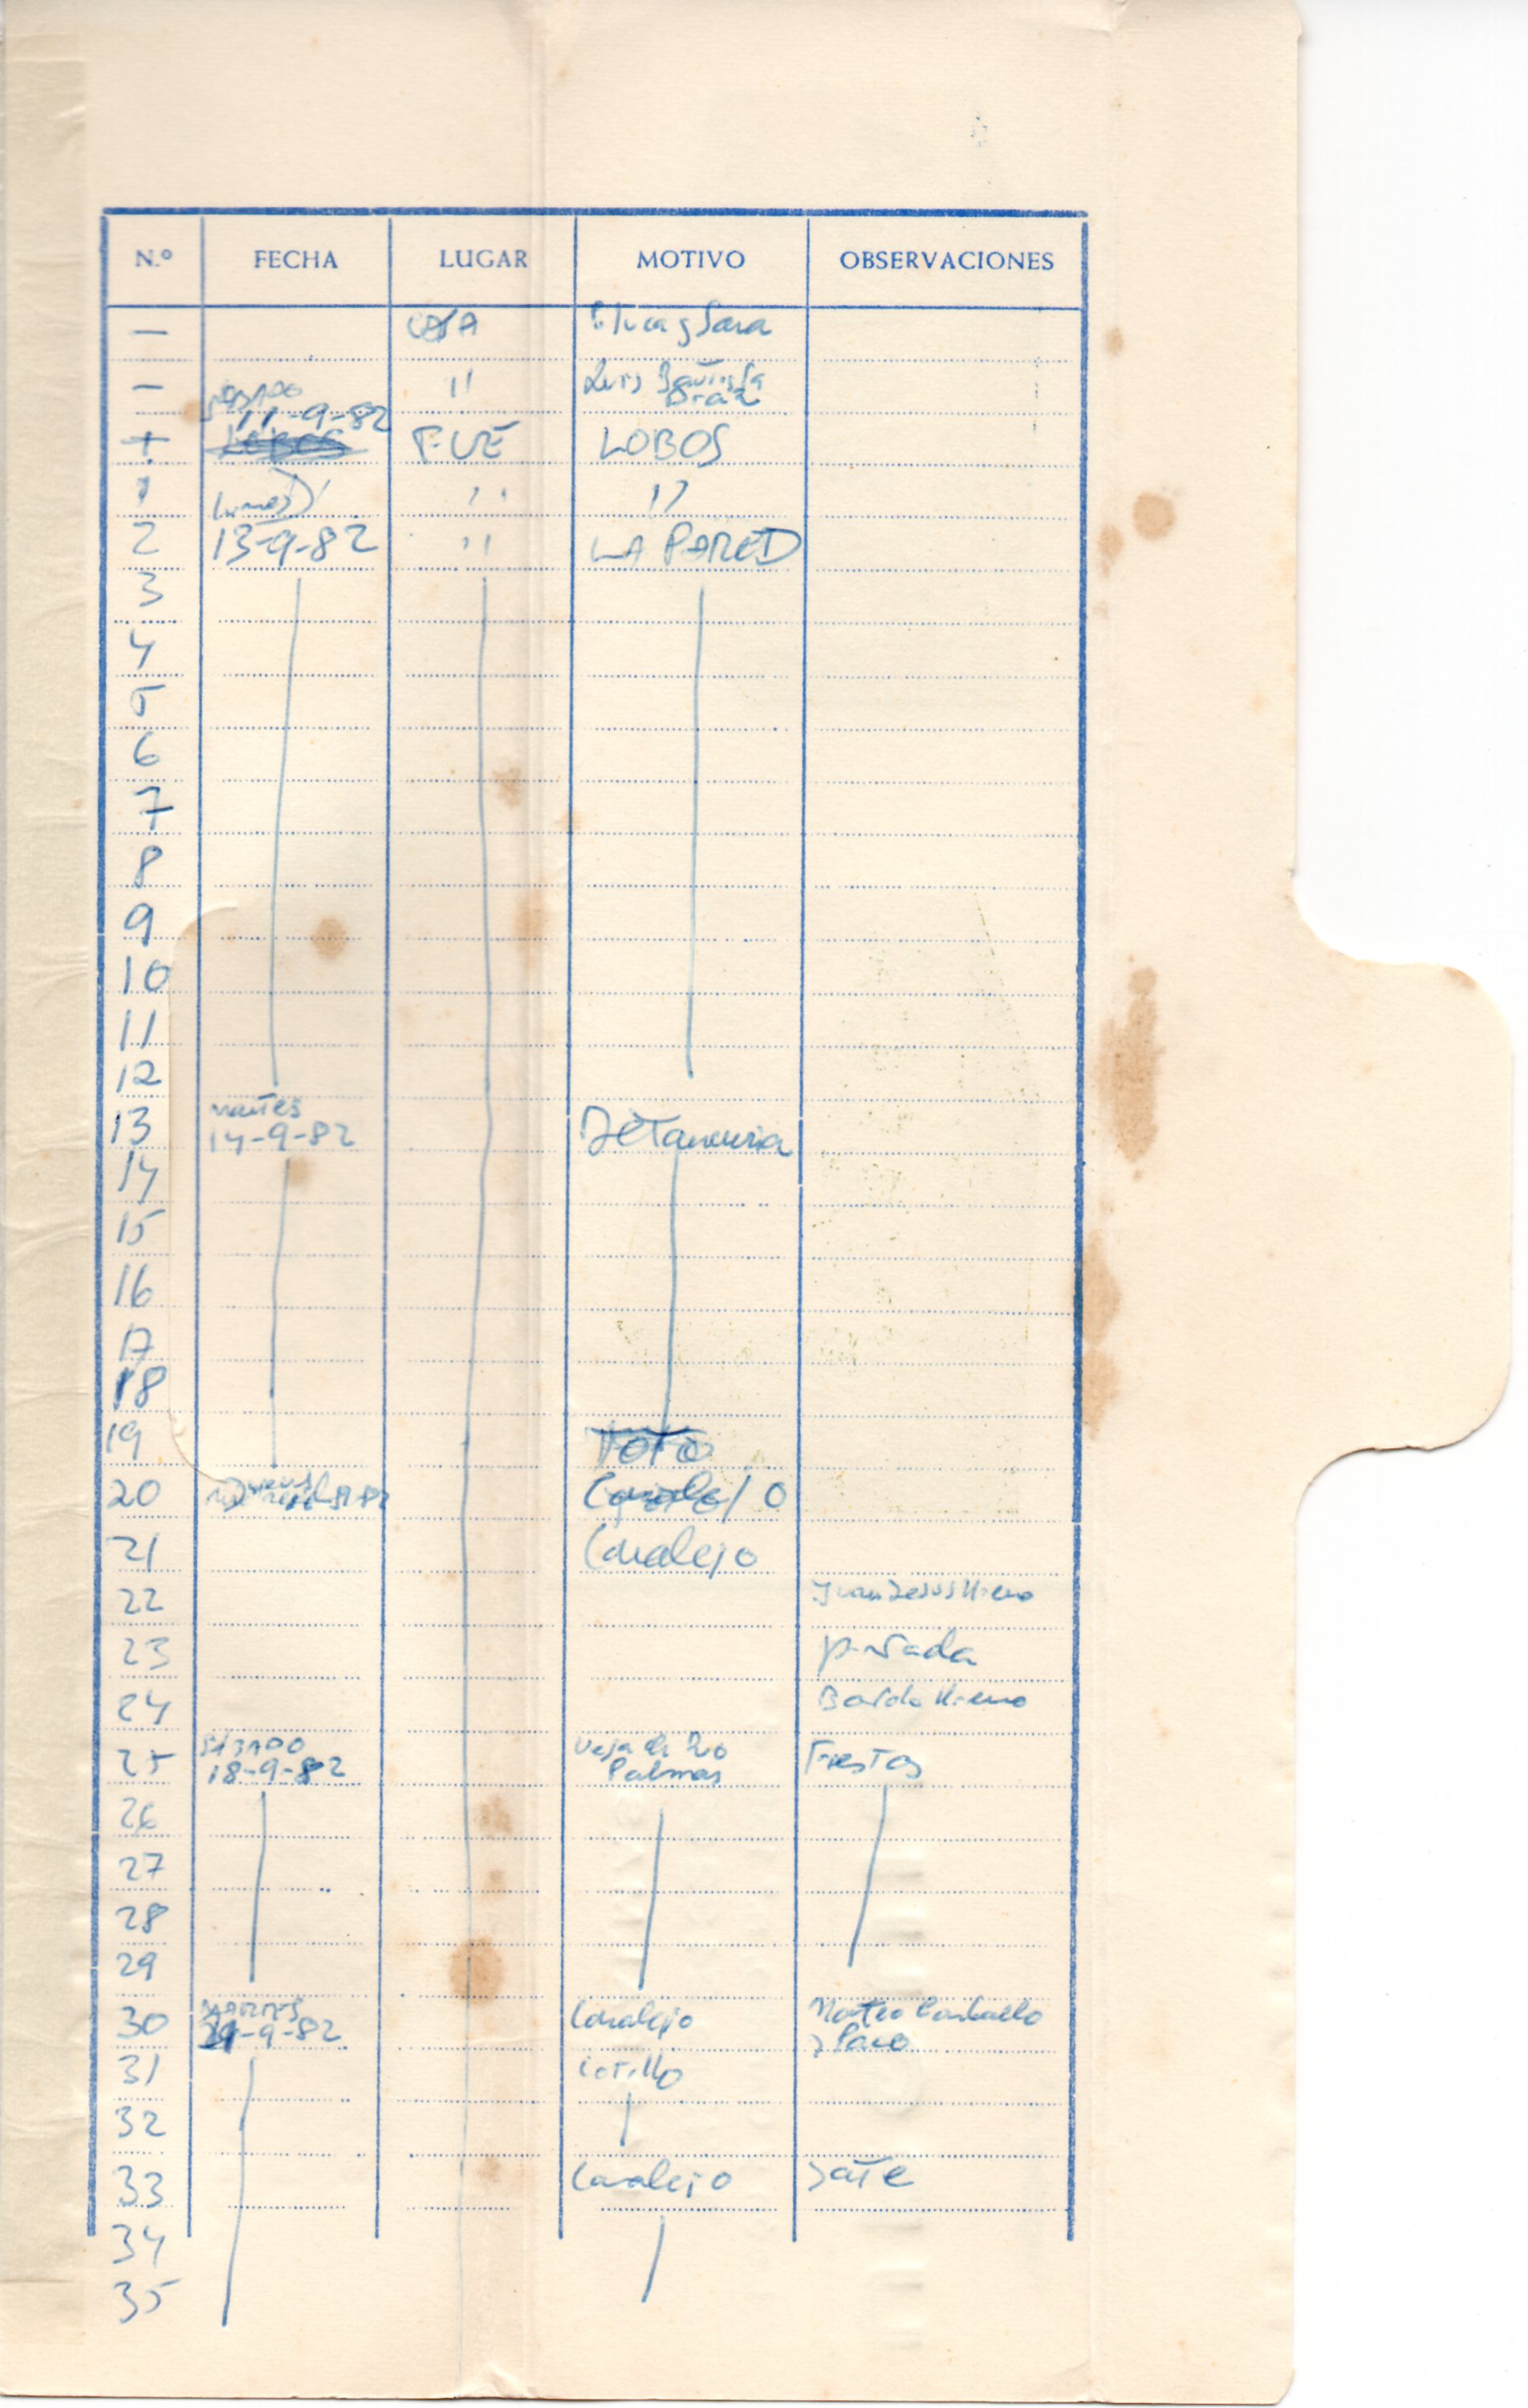 N.º FECHA LUGAR MOTIVO OBSERVACIONES
— CASA y Sara
— " Luis Bautista Diaz
SABADO
11-9-82
+ FUE LOBOS
1 Lunes " "
2 13-9-82 " LA PARED
3
4
5
6
7
8
9
10
11
12
martes
13 14-9-82 Betancuria
14
15
16
17
18
19 TOTO
20 Corralejo
21 Corralejo
22 Juan Jesus
23 pescada
24
SABADO
25 18-9-82 Vega de Rio Palmas Fiestas
26
27
28
29
MARTES
30 21-9-82 Corralejo Mateo Carballo
y Paco
31 Cotillo
32
33 Corralejo Jate
34
35